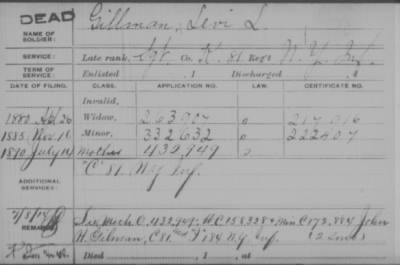 DEAD
NAME OF SOLDIER: Gillman, Levi L.
SERVICE: Late rank, Sgt. Co. K. 81 Reg't N. Y. Inf.
TERM OF SERVICE: Enlisted , 1 Discharged , 1
DATE OF FILING. CLASS. APPLICATION NO. LAW. CERTIFICATE NO.
Invalid,
1882 26 Widow, 263,907 217,916
1885 Nov 10 Minor, 332632 222407
1890 July 14 Mother 432,949
"C" 81. N.Y. Inf.
ADDITIONAL SERVICES:
REMARKS: See Mech. O. 432,949. & C 173,884 John
N. Gilman, C 81 & 184 N.Y. Inf.
Died , 1 , at